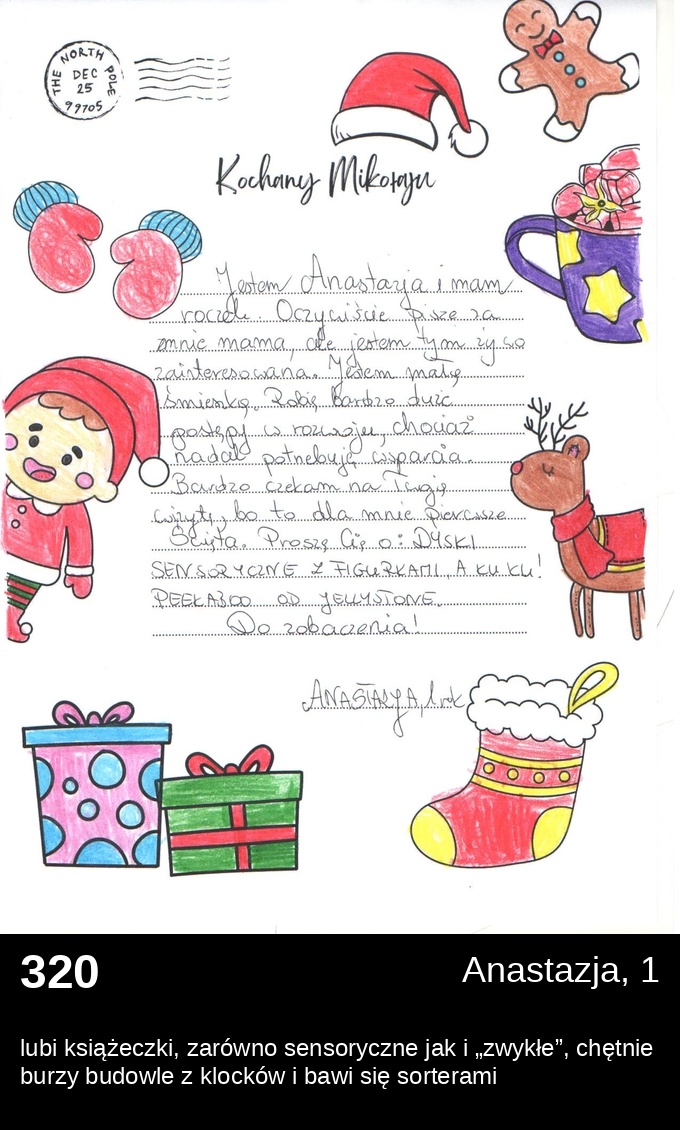 THE NORTH POLE
DEC
25
99705
Kochany Mikołaju
Jestem Anastazja i mam
roczek. Oczywiście pisze za
mnie mama, ale jestem tym żywo
zainteresowana. Jestem małą
śmieszką. Robię bardzo duże
postępy w rozwoju, chociaż
nadal potrebuję wsparcia.
Bardzo czekam na Twoją
wizytę, bo to dla mnie pierwsze
Święta. Proszę Cię o: DYSKI
SENSORYCZNE Z FIGURKAMI, A KU KU!
PEEKABOO OD JELLYSTONE.
Do zobaczenia!
ANASTAZJA, 1 rok
320
Anastazja, 1
lubi książeczki, zarówno sensoryczne jak i „zwykłe”, chętnie
burzy budowle z klocków i bawi się sorterami